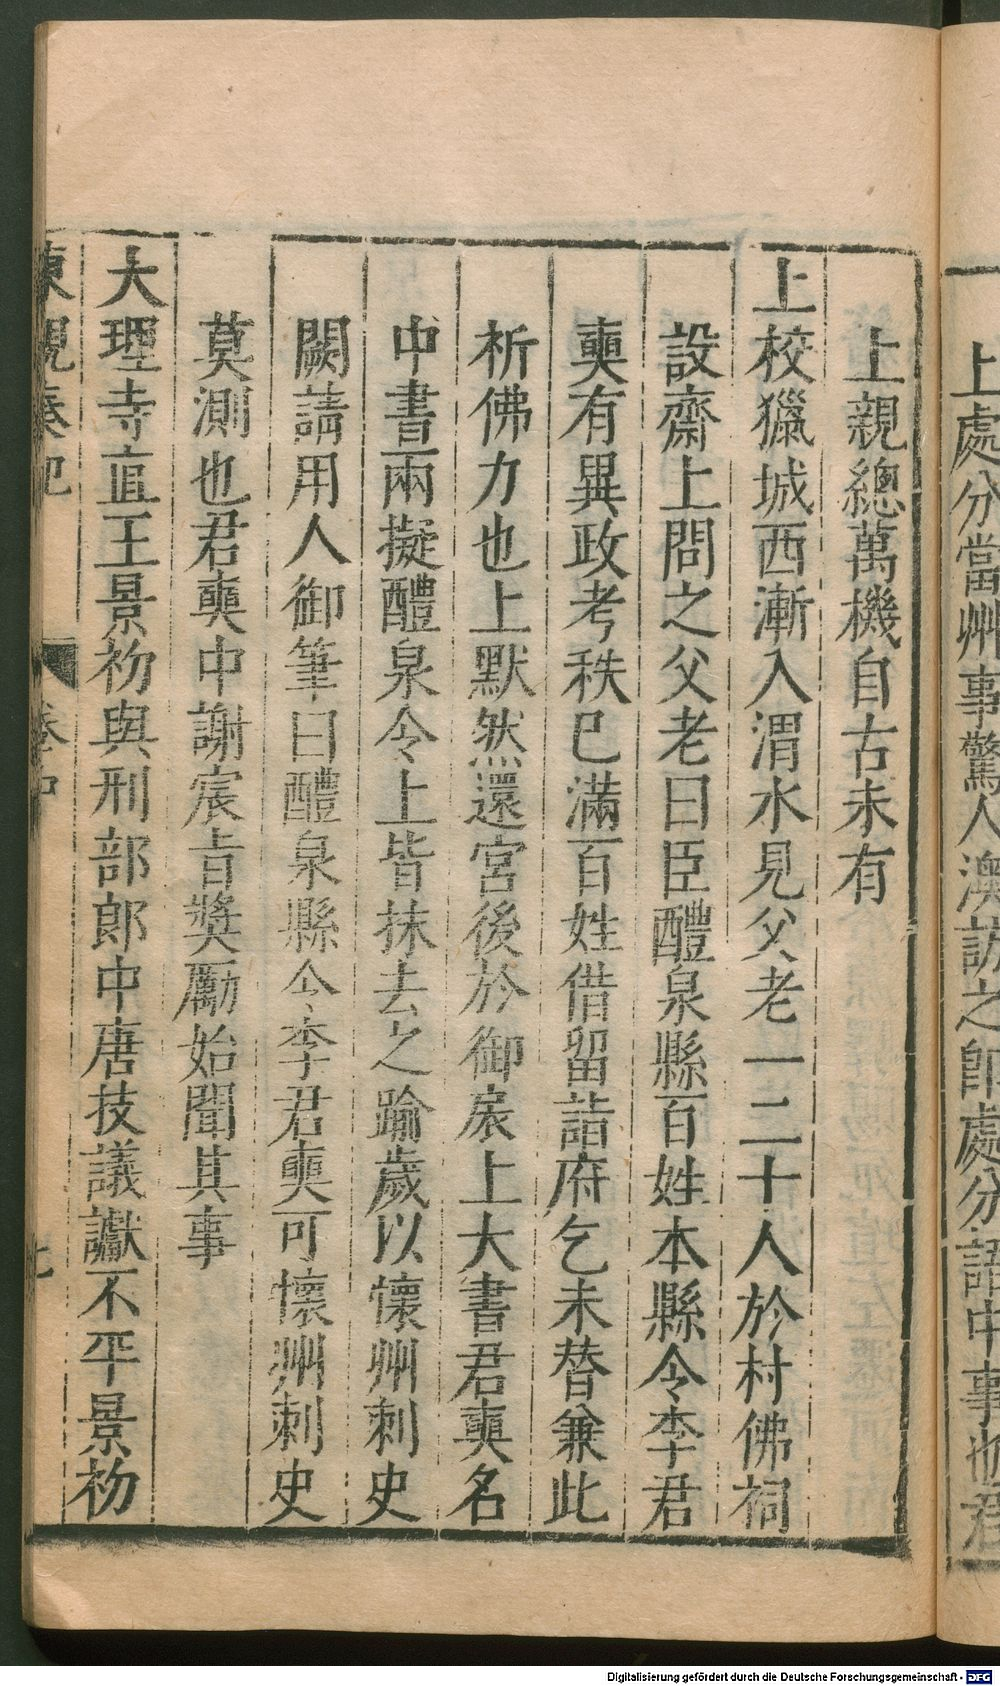 上處分當州事驚人澳訪之即處分語中事也君
上親總萬機自古未有
上校獵城西漸入渭水見父老一二十人於村佛祠
設齋上問之父老曰臣醴泉縣百姓本縣令李君
奭有異政考秩已滿百姓借留詣府乞未替兼此
祈佛力也上默然還宮後於御扆上大書君奭名
中書兩擬醴泉令上皆抹去之踰歲以懷州刺史
闕請用人御筆曰醴泉縣令李君奭可懷州刺史
莫測也君奭中謝宸旨獎勵始聞其事
大理寺直王景初與刑部郎中唐技議讞不平景初
東觀奏記 卷中 七
Digitalisierung gefördert durch die Deutsche Forschungsgemeinschaft - DFG